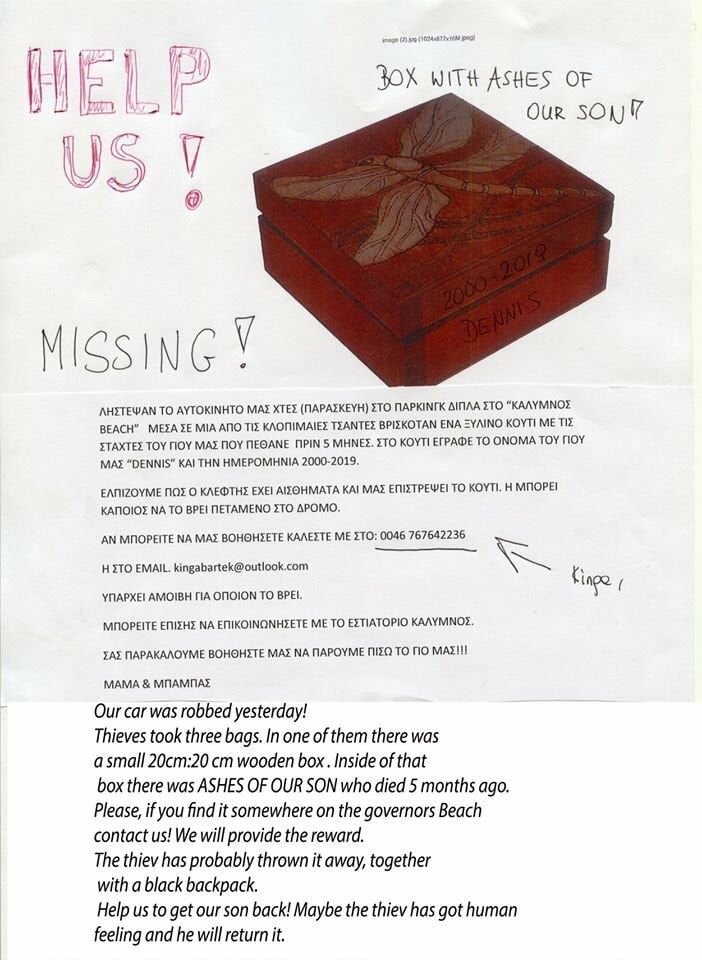 image (2).jpg (1024x877x16M jpeg)
HELP
US!
BOX WITH ASHES OF
OUR SON!
2000-2019
DENNIS
MISSING!
ΛΗΣΤΕΨΑΝ ΤΟ ΑΥΤΟΚΙΝΗΤΟ ΜΑΣ ΧΤΕΣ (ΠΑΡΑΣΚΕΥΗ) ΣΤΟ ΠΑΡΚΙΝΓΚ ΔΙΠΛΑ ΣΤΟ "ΚΑΛΥΜΝΟΣ
BEACH" ΜΕΣΑ ΣΕ ΜΙΑ ΑΠΟ ΤΙΣ ΚΛΟΠΙΜΑΙΕΣ ΤΣΑΝΤΕΣ ΒΡΙΣΚΟΤΑΝ ΕΝΑ ΞΥΛΙΝΟ ΚΟΥΤΙ ΜΕ ΤΙΣ
ΣΤΑΧΤΕΣ ΤΟΥ ΓΙΟΥ ΜΑΣ ΠΟΥ ΠΕΘΑΝΕ ΠΡΙΝ 5 ΜΗΝΕΣ. ΣΤΟ ΚΟΥΤΙ ΕΓΡΑΦΕ ΤΟ ΟΝΟΜΑ ΤΟΥ ΓΙΟΥ
ΜΑΣ "DENNIS" ΚΑΙ ΤΗΝ ΗΜΕΡΟΜΗΝΙΑ 2000-2019.
ΕΛΠΙΖΟΥΜΕ ΠΩΣ Ο ΚΛΕΦΤΗΣ ΕΧΕΙ ΑΙΣΘΗΜΑΤΑ ΚΑΙ ΜΑΣ ΕΠΙΣΤΡΕΨΕΙ ΤΟ ΚΟΥΤΙ. Η ΜΠΟΡΕΙ
ΚΑΠΟΙΟΣ ΝΑ ΤΟ ΒΡΕΙ ΠΕΤΑΜΕΝΟ ΣΤΟ ΔΡΟΜΟ.
ΑΝ ΜΠΟΡΕΙΤΕ ΝΑ ΜΑΣ ΒΟΗΘΗΣΕΤΕ ΚΑΛΕΣΤΕ ΜΕ ΣΤΟ: 0046 767642236
Η ΣΤΟ EMAIL. kingabartek@outlook.com
ΥΠΑΡΧΕΙ ΑΜΟΙΒΗ ΓΙΑ ΟΠΟΙΟΝ ΤΟ ΒΡΕΙ.
ΜΠΟΡΕΙΤΕ ΕΠΙΣΗΣ ΝΑ ΕΠΙΚΟΙΝΩΝΗΣΕΤΕ ΜΕ ΤΟ ΕΣΤΙΑΤΟΡΙΟ ΚΑΛΥΜΝΟΣ.
ΣΑΣ ΠΑΡΑΚΑΛΟΥΜΕ ΒΟΗΘΗΣΤΕ ΜΑΣ ΝΑ ΠΑΡΟΥΜΕ ΠΙΣΩ ΤΟ ΓΙΟ ΜΑΣ!!!
ΜΑΜΑ & ΜΠΑΜΠΑΣ
Our car was robbed yesterday!
Thieves took three bags. In one of them there was
a small 20cm:20 cm wooden box . Inside of that
box there was ASHES OF OUR SON who died 5 months ago.
Please, if you find it somewhere on the governors Beach
contact us! We will provide the reward.
The thiev has probably thrown it away, together
with a black backpack.
Help us to get our son back! Maybe the thiev has got human
feeling and he will return it.